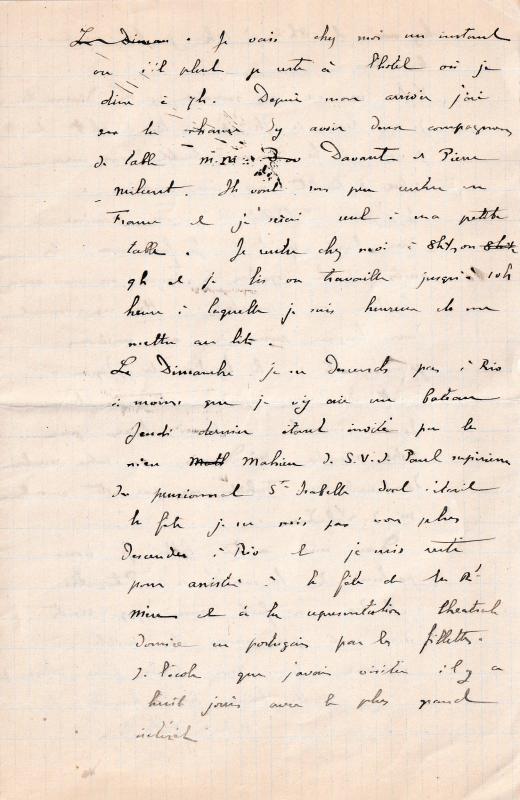 Le Diman . Je vais chez moi un instant
ou s'il pleut je reste à l'hotel où je
dine à 7h. Depuis mon arrivée j'ai
eu la chance d'y avoir deux compagnons
de table m.m. Davant et Pierre
Milcent. Ils vont sous peu rentrer en
France et je serai seul à ma petite
table . Je rentre chez moi à 8h½ ou 8h½
9h et je lis ou travaille jusqu'à 10h
heure à laquelle je suis heureux de me
mettre au lit .
Le Dimanche je ne descends pas à Rio
à moins que je n'y aie un bateau
Jeudi dernier étant invité par la
mère Math Mahieu d. S.V.d. Paul supérieure
du pensionnat Ste Isabelle dont c'était
la fête je ne suis pas non plus
descendu à Rio et je suis resté
pour assister à la fête de la Ré
mère et à la representation theatrale
donnée en portugais par les fillettes
d. l'ecole que j'avais visitée il y a
huit jours avec le plus grand
intérêt